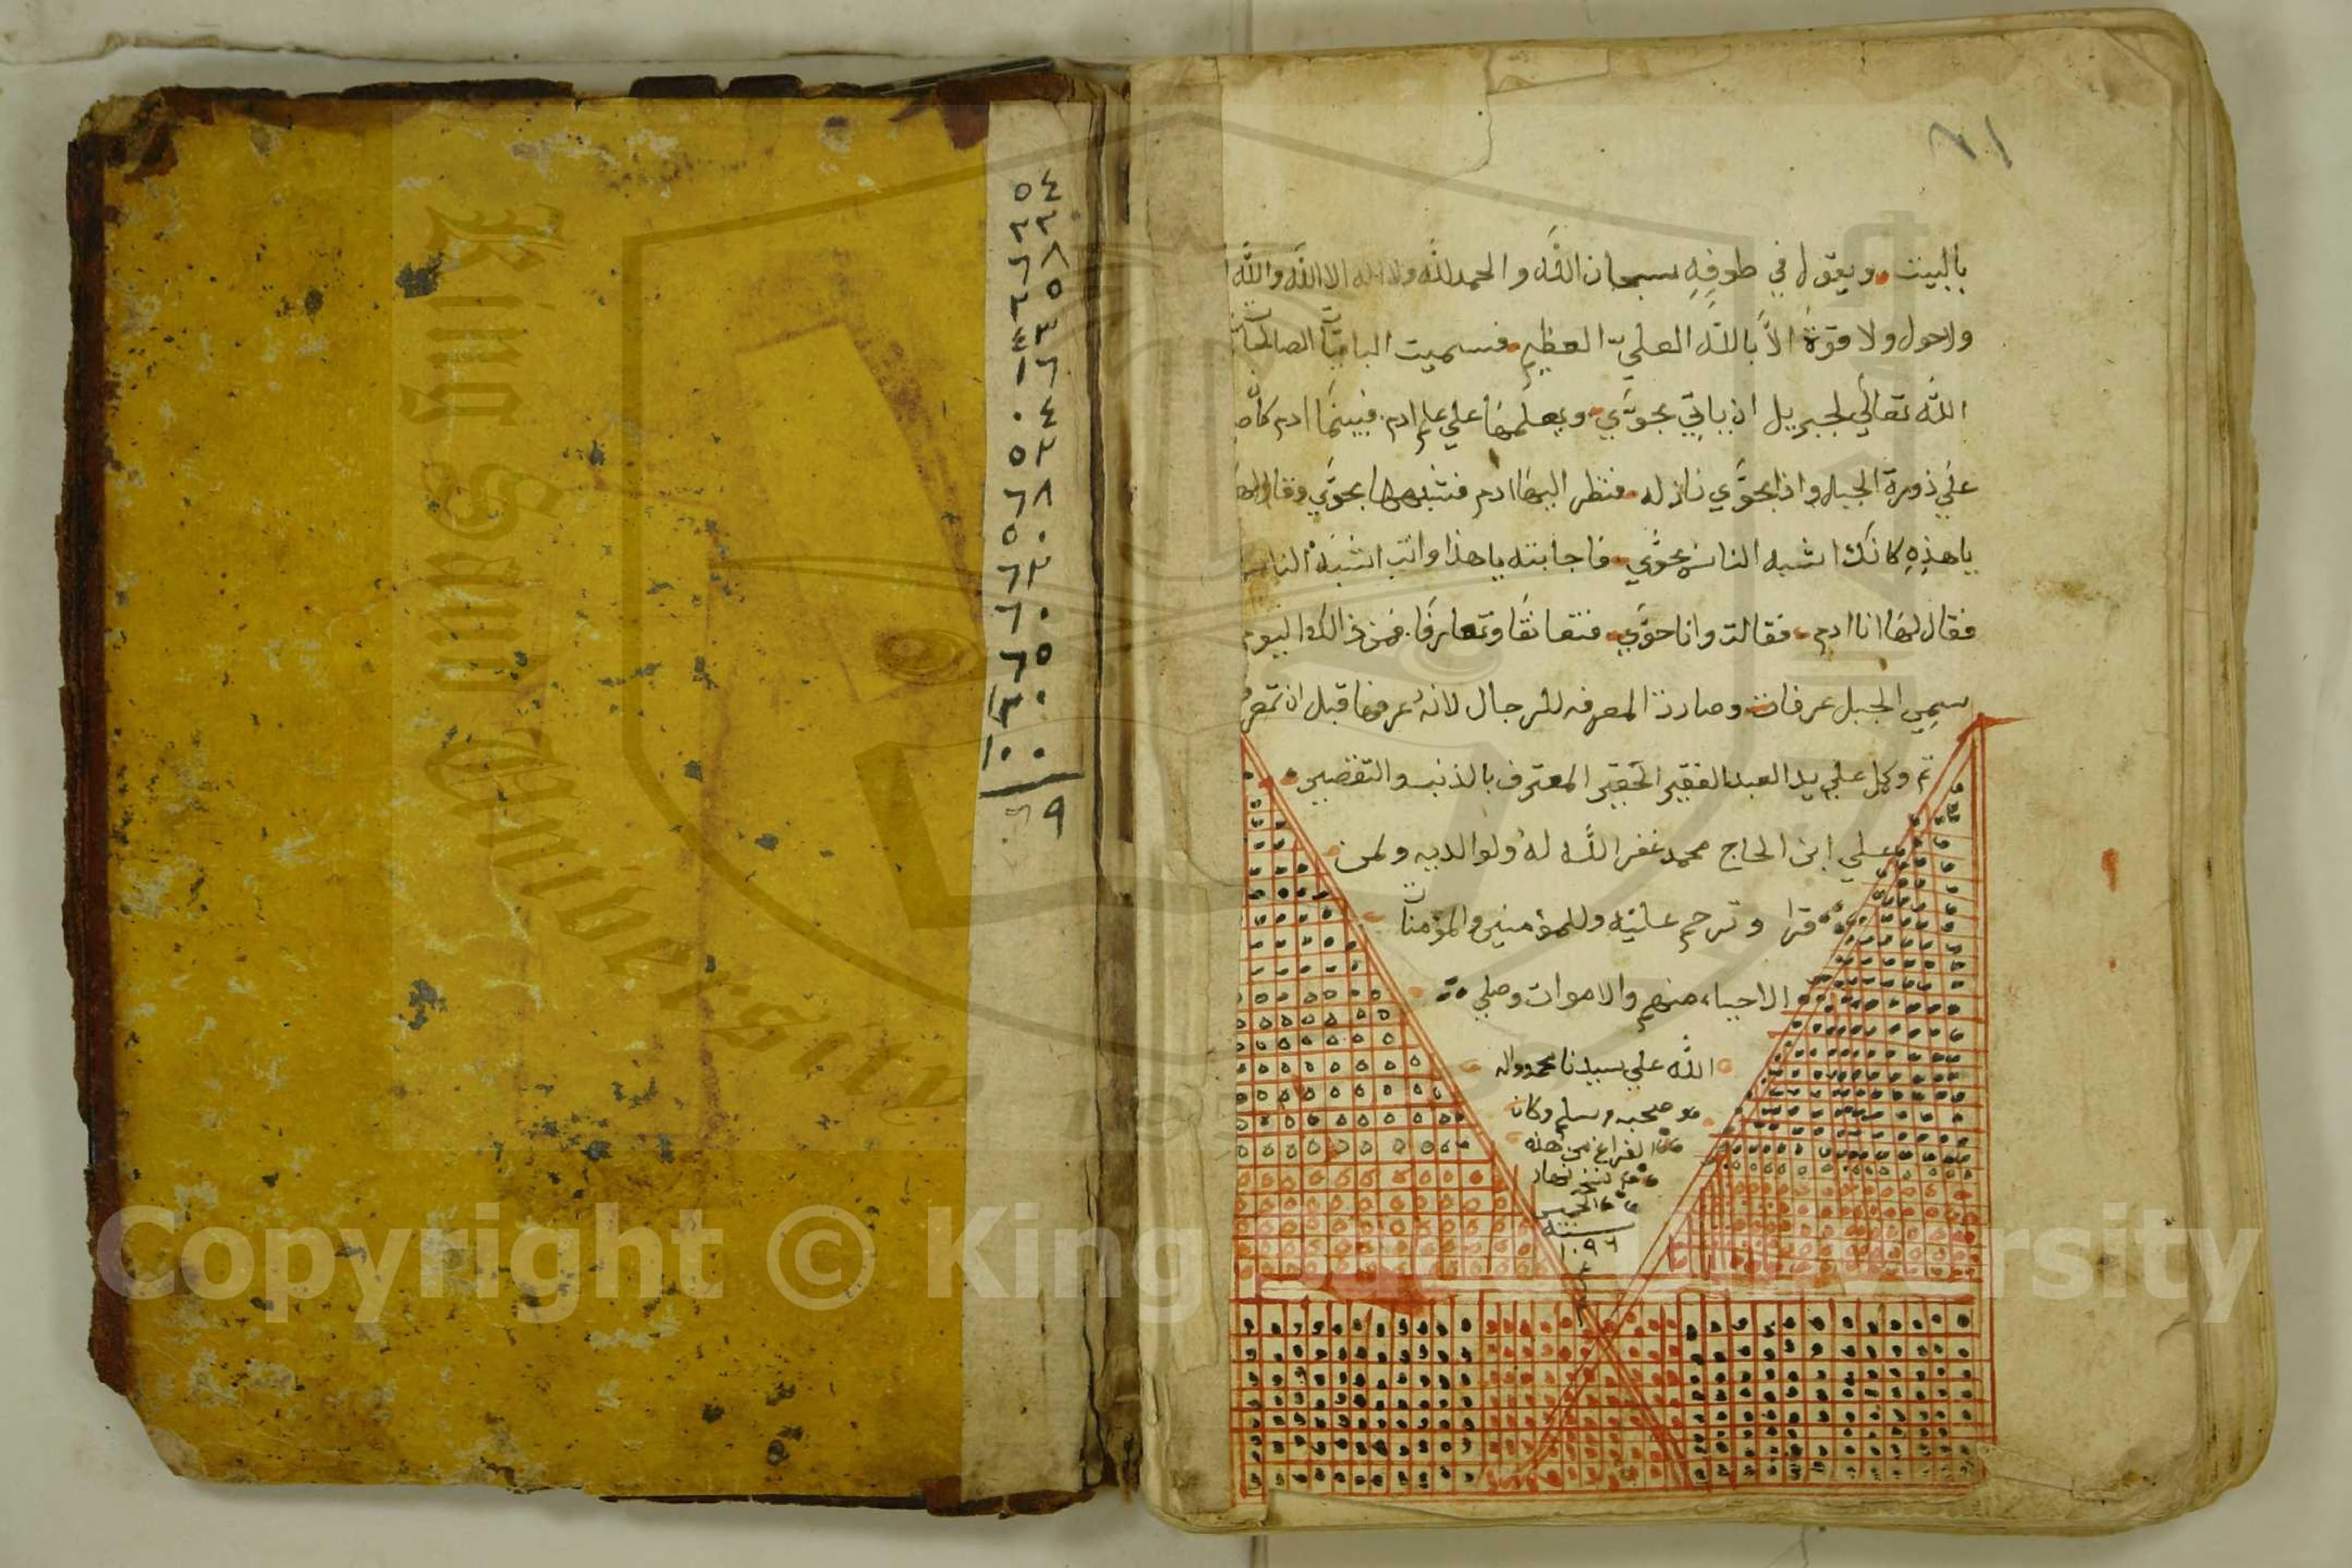 ٧١
بالبيت ويقول في طوفه سبحان الله والحمد لله ولا اله الا الله والله
ولاحول ولا قوة الا بالله العلي العظيم فسميت الباقيات الصالحات
الله تعالي لجبريل ان ياتي بحوي ويعلمها علي علم ادم فبينما ادم
علي ذورة الجبل واذا بحوي نازله فنظر اليها ادم فشبهها بحوي وقال لها
يا هذه كانك اشبه الناس بحوي فاجابته يا هذا وانت اشبه الناس
فقال لها انا ادم فقالت وانا حوي فتعانقا وتعارفا فمن ذالك اليوم
سمي الجبل عرفات وصارت المعرفه للرجال لانه عرفها قبل ان
تم وكمل علي يد العبد الفقير الحقير المعترف بالذنب والتقصير
علي ابن الحاج محمد غفر الله له ولوالديه ولمن
قرا وترحم عليه وللمؤمنين والمؤمنات
الاحياء منهم والاموات وصلي
الله علي سيدنا محمد واله
وصحبه وسلم وكان
الفراغ من هذه
نهار
الخميس
سنة
١٠٩٦
٥٤
٢٢
٦٨
٢٥
٤٣
١٦
٠٤
٥٣
٦٨
٥٠
٦٣
٦٠
٦٥
١٣٠
١٠٠
٦٩
King Saud University
Copyright © King Saud University